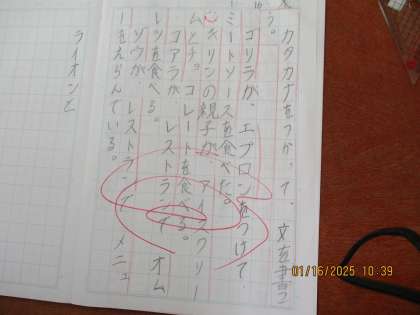 カタカナをつかって、文を書こ
う。
ゴリラが、エプロンをつけて、
ミートソースを食べた。
キリンの親子が、アイスクリー
ムとチョコレートを食べる。
コアラが、レストランで、オム
レツを食べる。
ゾウが、レストランで、メニュ
ーをえらんでいる。
ライオンと
01/16/2025 10:39